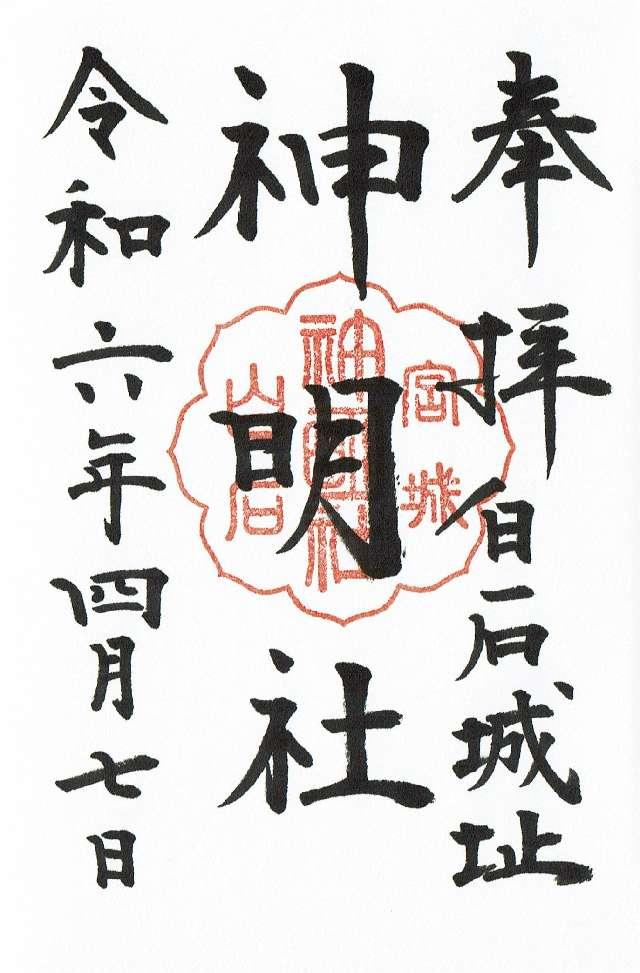 奉拝 白石城址
神明社
令和六年四月七日
宮城
神明社
白石